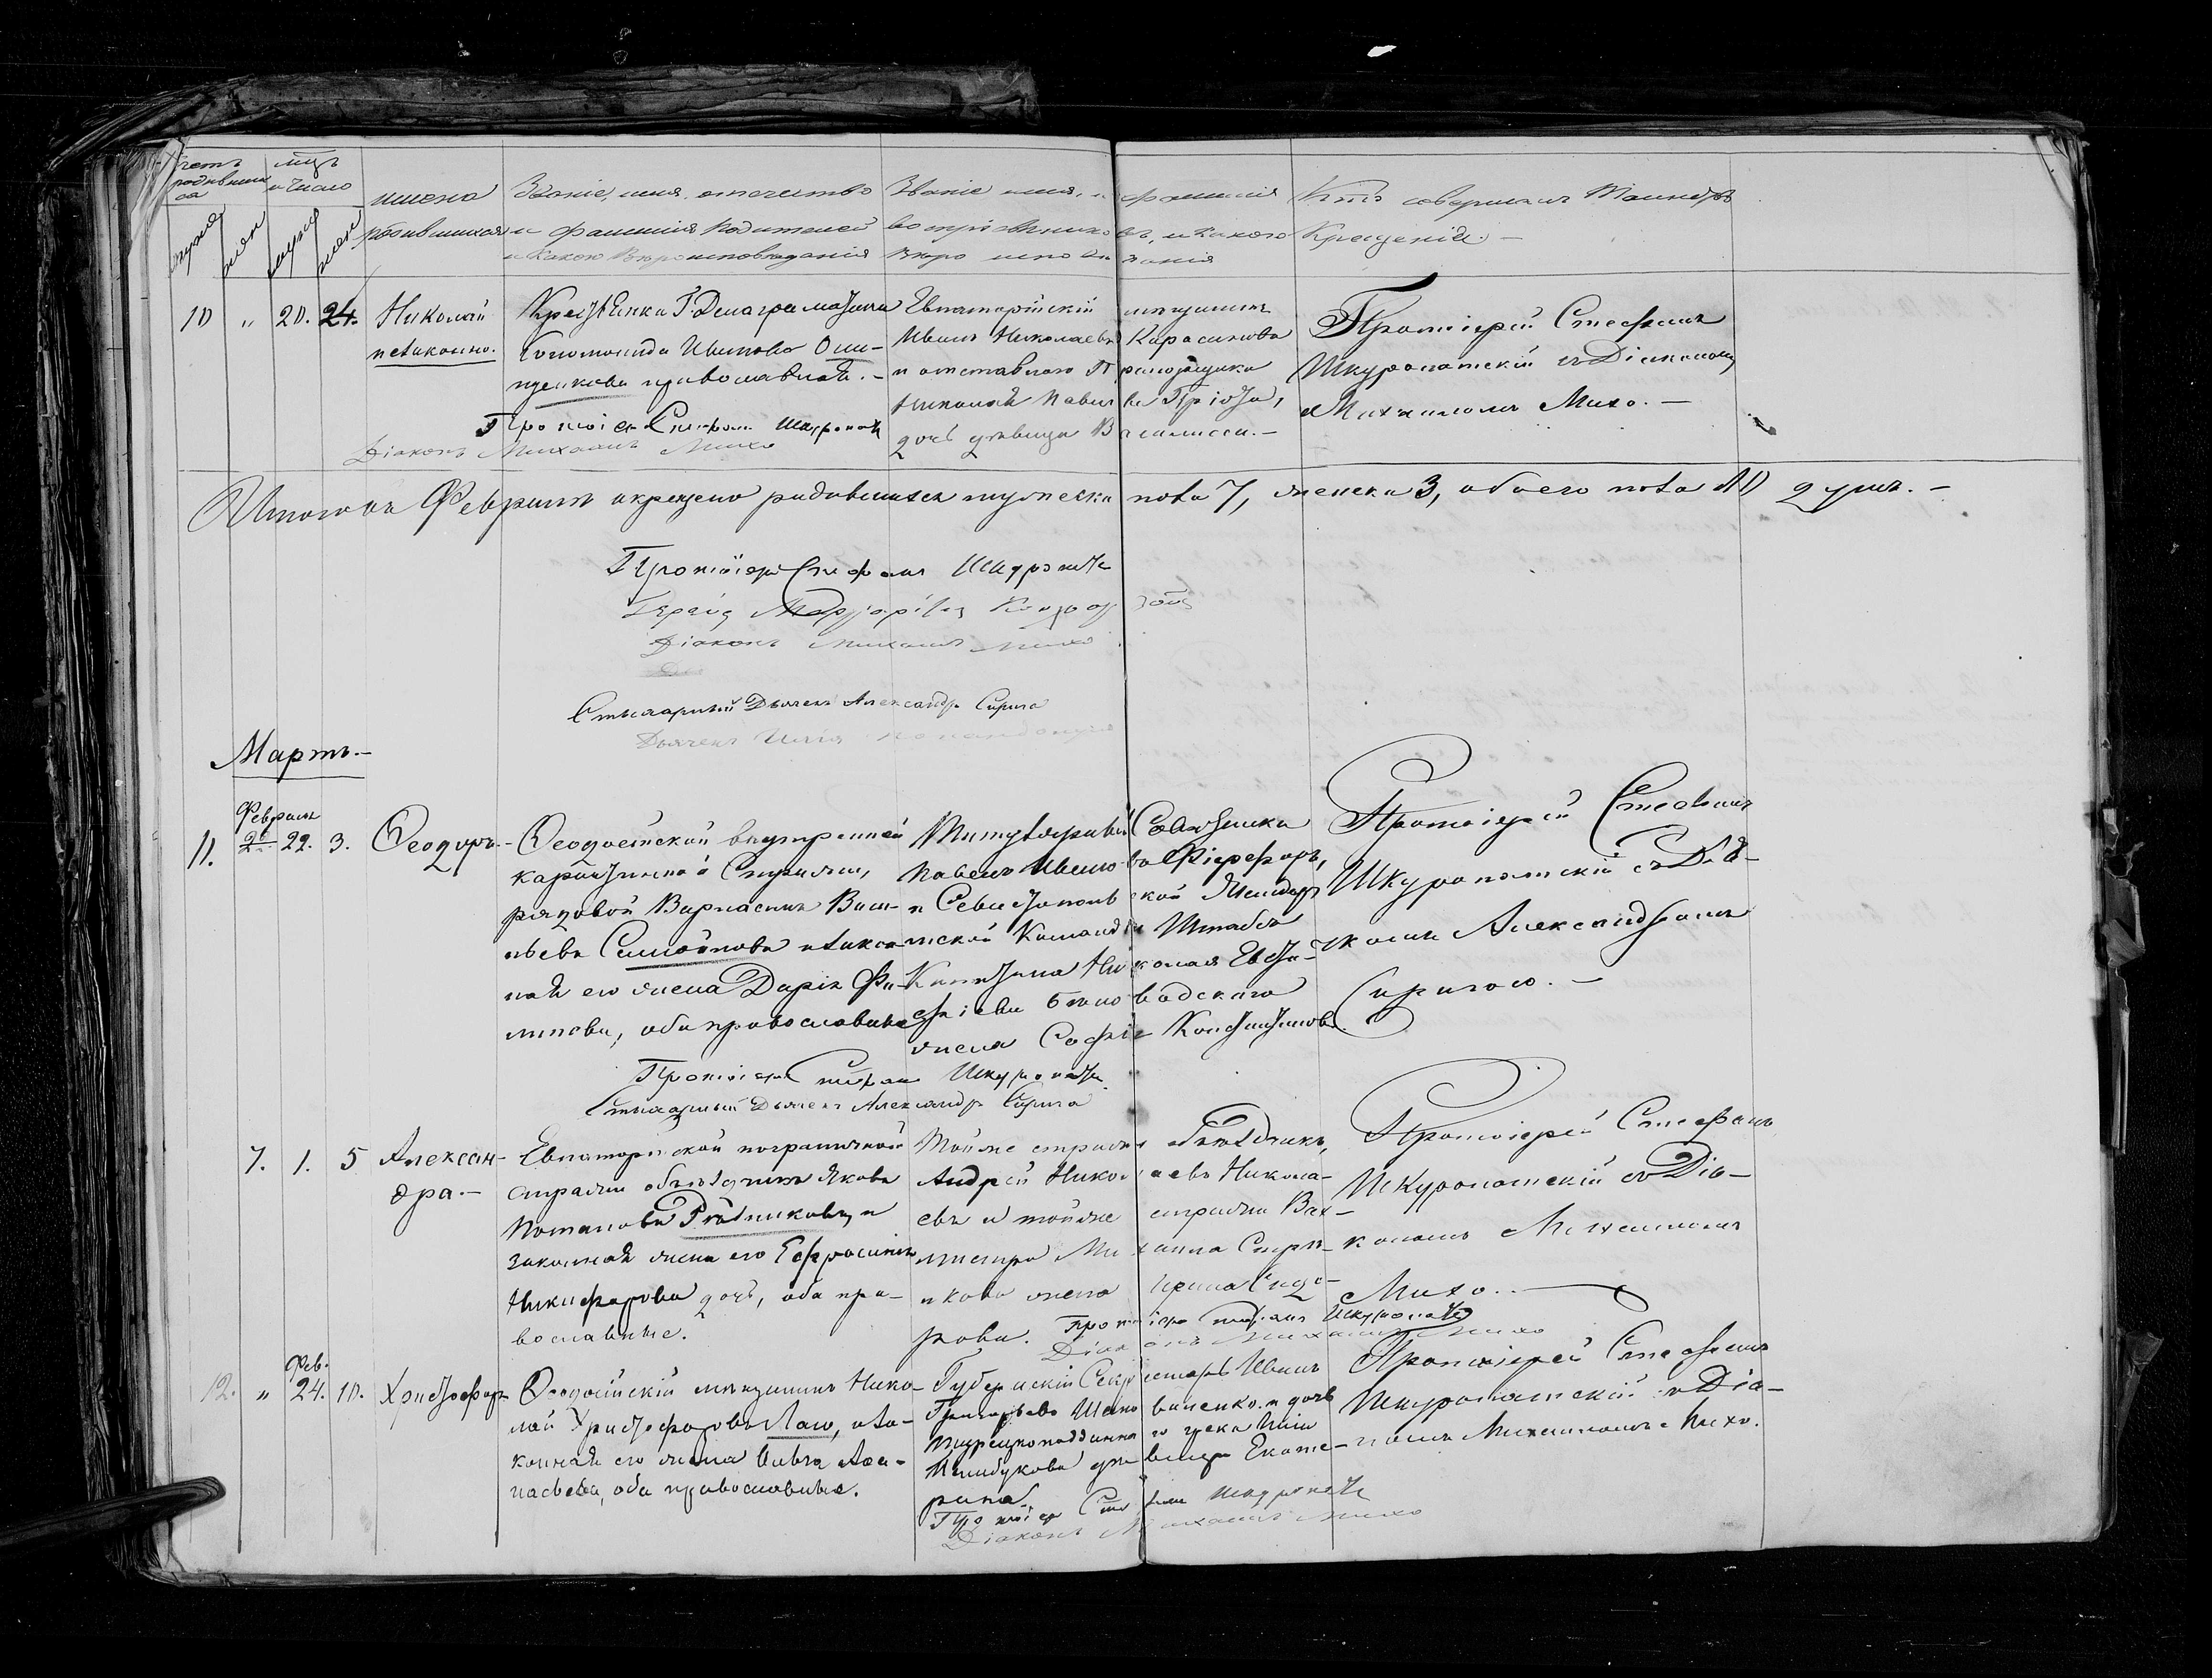 счетъ родившихся
мцъ и число
мужс. жен. мужс. жен.
имена родившихся
Званіе, имя, отечество
и фамилія Родителей
и какого Вѣроисповѣданія
Званіе имя, и фамилія
воспріемниковъ, и какого
Вѣро исповѣданія
Кто совершилъ Таинство
Крещенія. —
10 „ 20. 24.
Николай
незаконно.
православной. —
Евпаторійскій мѣщанинъ
Иванъ Николаевъ
и отставнаго
Николая Павлова
дочь дѣвица Василисса. —
Протоіерей Стефанъ
Шкуропатскій съ Діакономъ
Михаиломъ Михо. —
Протоіерей Стефанъ Шкуропат
Діаконъ Михаилъ Михо
Итого въ Февралѣ окрещено родившихся мужеска пола 7, женска 3, обоего пола 10 душъ. —
Протоіерей Стефанъ Шкуропат
Іерей
Діаконъ Михаилъ Михо
Стихарный Дьячекъ Александръ Сирига
Дьячекъ Илія
Мартъ. —
Февраля
11. 22. 3.
Ѳеодоръ. —
Ѳеодосійской внутренней
карантинной Стражи,
рядовой Василь-
евъ Самойловъ и закон-
ная его жена Дарія Фи-
липова, оба православные
Титулярный Совѣтника
Павелъ Ивановъ
и Севастопольской Жандарм-
ской Команды Штабсъ
Капитана Николая Евста-
фіева
жена Софія Константинова.
Протоіерей Стефанъ
Шкуропатскій съ Дья-
комъ Александромъ
Сиригою. —
Протоіерей Стефанъ Шкуропат
Стихарный Дьячекъ Александръ Сирига
7. 1. 5
Алексан-
дра. —
Евпаторійской пограничной
стражи объѣздчикъ Яковъ
Потаповъ и
законная жена его Ефросинія
Никифорова дочь, оба пра-
вославные.
Тойже стражи объѣздчикъ,
Андрей Николаевъ Никола-
евъ и тойже стражи Вах-
мистра Михаила
жена Ирина Сидо-
рова.
Протоіерей Стефанъ
Шкуропатскій съ Діа-
кономъ Михаиломъ
Михо. —
Протоіерей Стефанъ Шкуропат
Діаконъ Михаилъ Михо
Фев.
12. „ 24. 10.
Христофоръ
Ѳеодосійскій мѣщанинъ Нико-
лай Христофоровъ и за-
конная его жена Аѳа-
насьева, оба православные.
Губернскій Секретарь Иванъ
Григорьевъ и дочь
турецкоподданнаго грека
дѣвица Екате-
рина.
Протоіерей Стефанъ
Шкуропатскій съ Діа-
кономъ Михаиломъ Михо.
Протоіерей Стефанъ Шкуропат
Діаконъ Михаилъ Михо